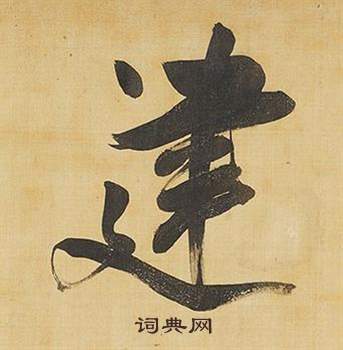 建
词典网